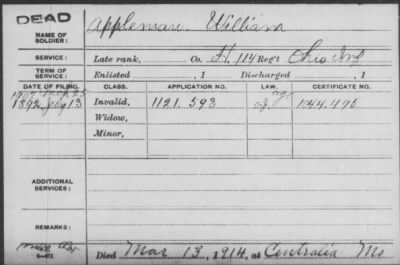 DEAD
NAME OF SOLDIER: Appleman William
SERVICE: Late rank, Co. H, 114 Reg't Ohio Inf
TERM OF SERVICE: Enlisted , 1 Discharged , 1
DATE OF FILING. CLASS. APPLICATION NO. LAW. CERTIFICATE NO.
1892, July 13 Invalid, 1121.593 1044.495
Widow,
Minor,
ADDITIONAL SERVICES:
REMARKS:
Died Mar 13, 1914, at Centralia Mo